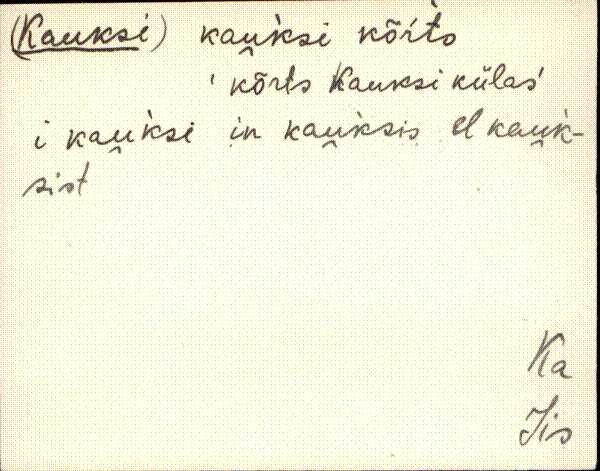 (Kauksi) kau̯k̀si kõŕts
'kõrts Kauksi külas'
i kau̯k̀si in kau̯k̀sis el kau̯k̀-
sist
Ka
Iis